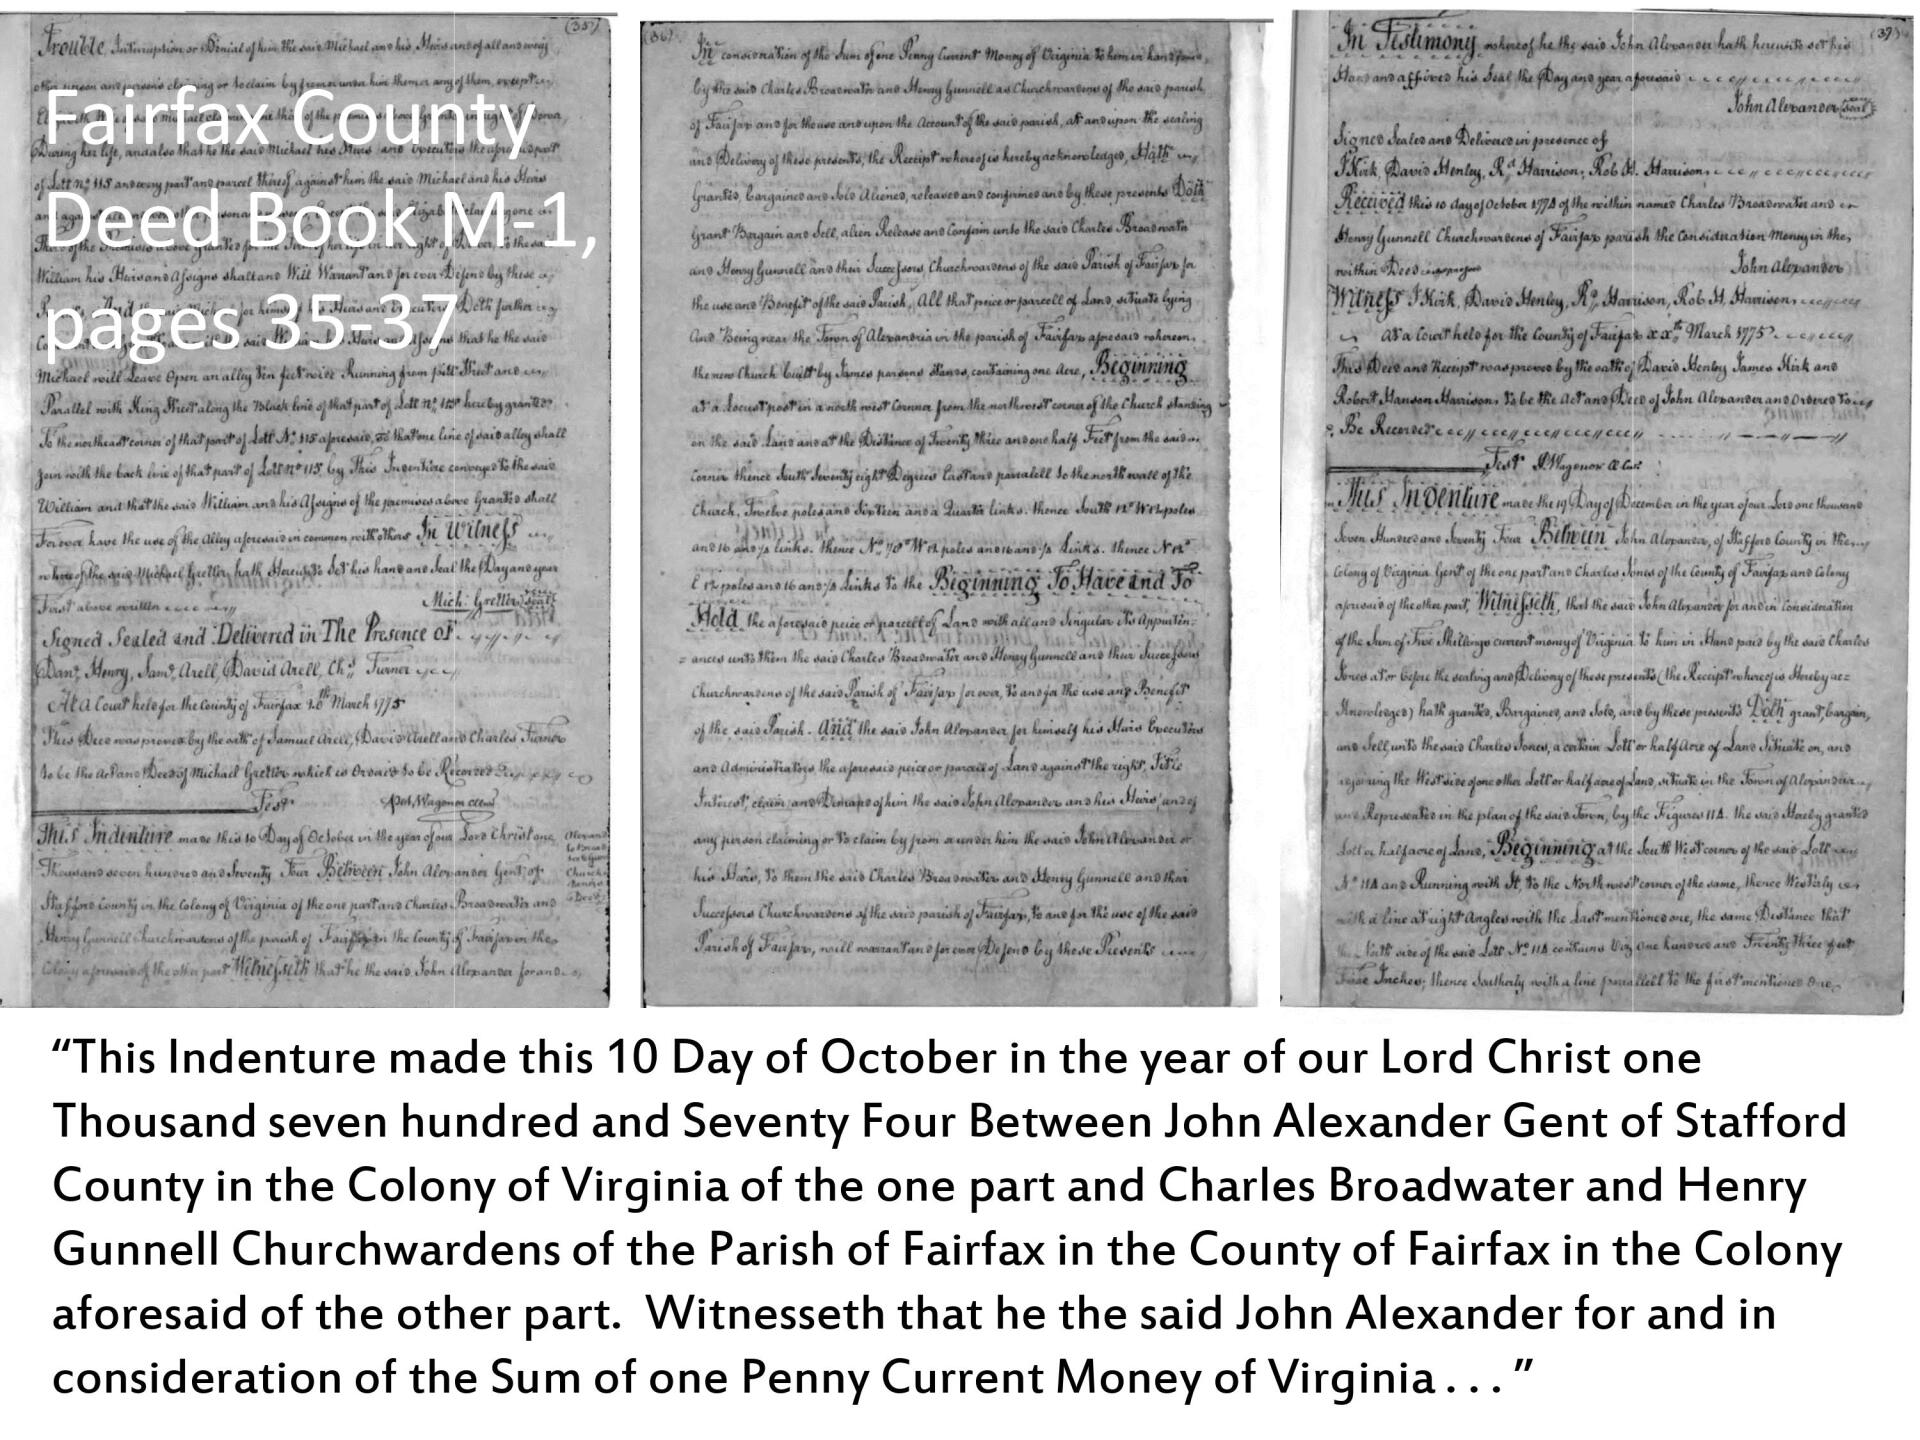 (35)
Trouble, Interruption or Denial of him the said Michael and his Heirs and of all and every
other person and persons claiming or to claim by from or under him them or any of them, except
Fairfax County
During her life, and also that he the said Michael his Heirs and Executors the aforesaid part
of Lott No 115 and every part and parcel thereof against him the said Michael and his Heirs
Deed Book M-1,
William his Heirs and Assigns shall and Will Warrant and for ever Defend by these
pages 35-37
Michael will Leave Open an alley ten feet wide Running from pitt Street and
Parallel with King Street along the Back line of that part of Lott No 115 hereby granted
To the northeast corner of that part of Lott No 115 aforesaid, so that one line of said alley shall
Join with the back line of that part of Lott No 115 by This Indenture conveyed to the said
William and that the said William and his Assigns of the premises above Granted shall
Forever have the use of the Alley aforesaid in common with others In Witness
whereof the said Michael Gretter hath Hereunto Set his hand and Seal the Day and year
First above written Mich: Gretter seal
Signed Sealed and Delivered in The Presence of
Danl Henry, Saml Arell, David Arell, Chs Turner
At a Court held for the County of Fairfax 20th March 1775
This Deed was proved by the oath of Samuel Arell, David Arell and Charles Turner
to be the Act and Deed of Michael Gretter which is Ordered to be Recorded
Test P Wagener
This Indenture made this 10 Day of October in the year of our Lord Christ one
Thousand seven hundred and Seventy Four Between John Alexander Gent of
Stafford County in the Colony of Virginia of the one part and Charles Broadwater and
Henry Gunnell Churchwardens of the parish of Fairfax in the County of Fairfax in the
Colony aforesaid of the other part Witnesseth that he the said John Alexander for and
(36)
In consideration of the Sum of one Penny Current Money of Virginia to him in hand paid,
by the said Charles Broadwater and Henry Gunnell as Churchwardens of the said parish
of Fairfax and for the use and upon the Account of the said parish, at and upon the sealing
and Delivery of these presents, the Receipt whereof is hereby acknowledged, Hath
Granted, bargained and Sold Aliened, released and confirmed and by these presents Doth
Grant Bargain and Sell, alien Release and Confirm unto the said Charles Broadwater
and Henry Gunnell and their Successors Churchwardens of the said Parish of Fairfax for
the use and Benefit of the said Parish, All that peice or parcell of Land, situate lying
And Being near the Town of Alexandria in the parish of Fairfax aforesaid whereon,
the new Church built by James parsons stands, containing one Acre, Beginning
at a Locust post in a north west Corner from the northwest corner of the Church standing
on the said Land and at the Distance of Twenty three and one half Feet from the said
corner thence South Seventy eight Degrees East and paralell to the north wall of the
Church, Twelve poles and Sixteen and a Quarter links. thence South 12° W 12 poles
and 16 and ¼ links. thence No 78° W 12 poles and 16 and ¼ Links. thence N 12°
E 12 poles and 16 and ¼ Links to the Beginning To Have and To
Hold the aforesaid peice or parcell of Land with all and Singular Its Appurten=
=ances unto them the said Charles Broadwater and Henry Gunnell and their Successors
Churchwardens of the said Parish of Fairfax for ever, to and for the use and Benefit
of the said Parish. And the said John Alexander for himself his Heirs Executors
and Administrators the aforesaid peice or parcell of Land against the right, Title
Interest, claim and Demand of him the said John Alexander and his Heirs and of
any person claiming or to claim by from or under him the said John Alexander or
his Heirs, to them the said Charles Broadwater and Henry Gunnell and their
Successors Churchwardens of the said parish of Fairfax, to and for the use of the said
Parish of Fairfax, will warrant and for ever Defend by these Presents
(37)
In Testimony whereof he the said John Alexander hath hereunto set his
Hand and affixed his Seal the Day and year aforesaid
John Alexander seal
Signed Sealed and Delivered in presence of
J Kirk, David Henley, Rd Harrison, Rob H. Harrison
Received this 10 day of October 1774 of the within named Charles Broadwater and
Henry Gunnell Churchwardens of Fairfax parish the Consideration Money in the
within Deed
John Alexander
Witness J Kirk, David Henley, Rd Harrison, Rob H. Harrison
At a Court held for the County of Fairfax xxth March 1775
This Deed and Receipt was proved by the oath of David Henley James Kirk and
Robert Hanson Harrison, to be the Act and Deed of John Alexander and Ordered to
Be Recorded
Test P Wagener
This Indenture made the 19 Day of December in the year of our Lord one thousand
Seven Hundred and Seventy Four Between John Alexander, of Stafford County in the
Colony of Virginia Gent of the one part and Charles Jones of the County of Fairfax and Colony
aforesaid of the other part, Witnesseth, that the said John Alexander for and in Consideration
of the Sum of Five Shillings current money of Virginia to him in Hand paid by the said Charles
Jones at or before the sealing and Delivery of these presents (the Receipt whereof is Hereby ac=
Knowledged) hath granted, Bargained, and Sold, and by these presents Doth grant, bargain,
and Sell, unto the said Charles Jones, a certain Lott or half Acre of Land Situate on, and
adjoining the West side of one other Lott or half acre of Land, situate in the Town of Alexandria
and Represented in the plan of the said Town, by the Figures 114. the said Hereby granted
Lott or half acre of Land, Beginning at the South West corner of the said Lott
No 114 and Running with It, to the North west corner of the same, thence Westerly
with a line at right Angles with the Last mentioned one, the same Distance that
the North side of the said Lott No 114 contains Viz one hundred and Twenty three feet
Inches; thence Southerly with a line parallell to the first mentioned One
“This Indenture made this 10 Day of October in the year of our Lord Christ one
Thousand seven hundred and Seventy Four Between John Alexander Gent of Stafford
County in the Colony of Virginia of the one part and Charles Broadwater and Henry
Gunnell Churchwardens of the Parish of Fairfax in the County of Fairfax in the Colony
aforesaid of the other part.  Witnesseth that he the said John Alexander for and in
consideration of the Sum of one Penny Current Money of Virginia . . . ”